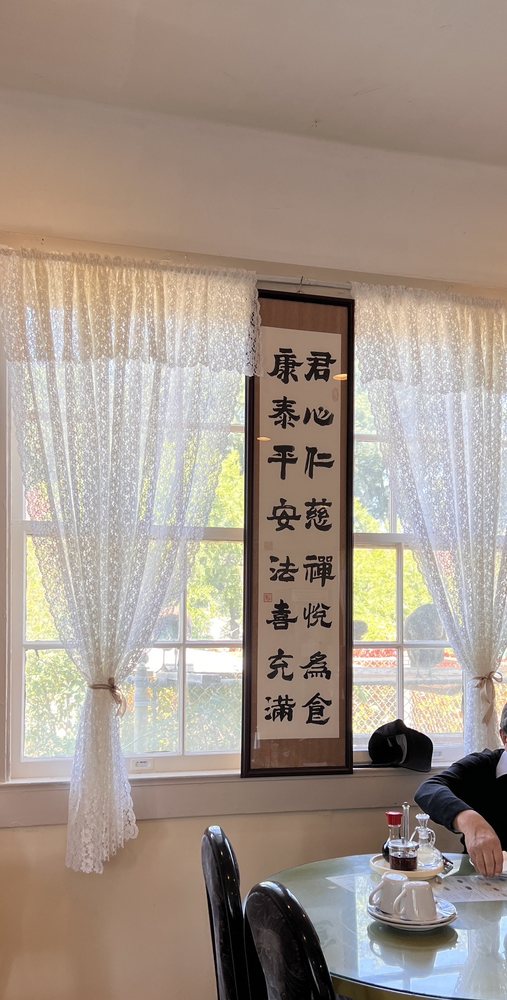 君心仁慈禪悅為食
康泰平安法喜充滿